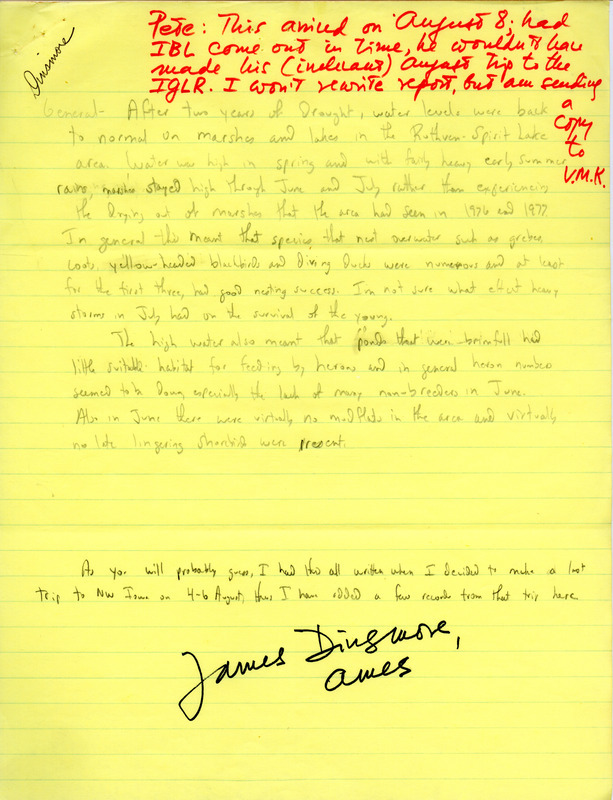 Dinsmore
Pete: This arrived on August 8; had
IBL come out in time, he wouldn't have
made his (inclusant) August trip to the
IGLR. I won't rewrite report, but am sending
a
copy
to
V.M.K.
General - After two years of Drought, water levels were back
to normal on marshes and lakes in the Ruthven-Spirit Lake
area. Water was high in spring and with fairly heavy early summer
rains, marshes stayed high through June and July rather than experiencing
the drying out of marshes that the area had seen in 1976 and 1977.
In general this meant that species that nest overwater such as grebes,
coots, yellow-headed blackbirds and diving ducks were numerous and at least
for the first three, had good nesting success. I'm not sure what effect heavy
storms in July had on the survival of the young.
The high water also meant that ponds that were brimfull had
little suitable habitat for feeding by herons and in general heron numbers
seemed to be down, especially the lack of many non-breeders in June.
Also in June there were virtually no mudflats in the area and virtually
no late lingering shorebirds were present.
As you will probably guess, I had this all written when I decided to make a last
trip to NW Iowa on 4-6 August, thus I have added a few records from that trip here.
James Dinsmore,
Ames